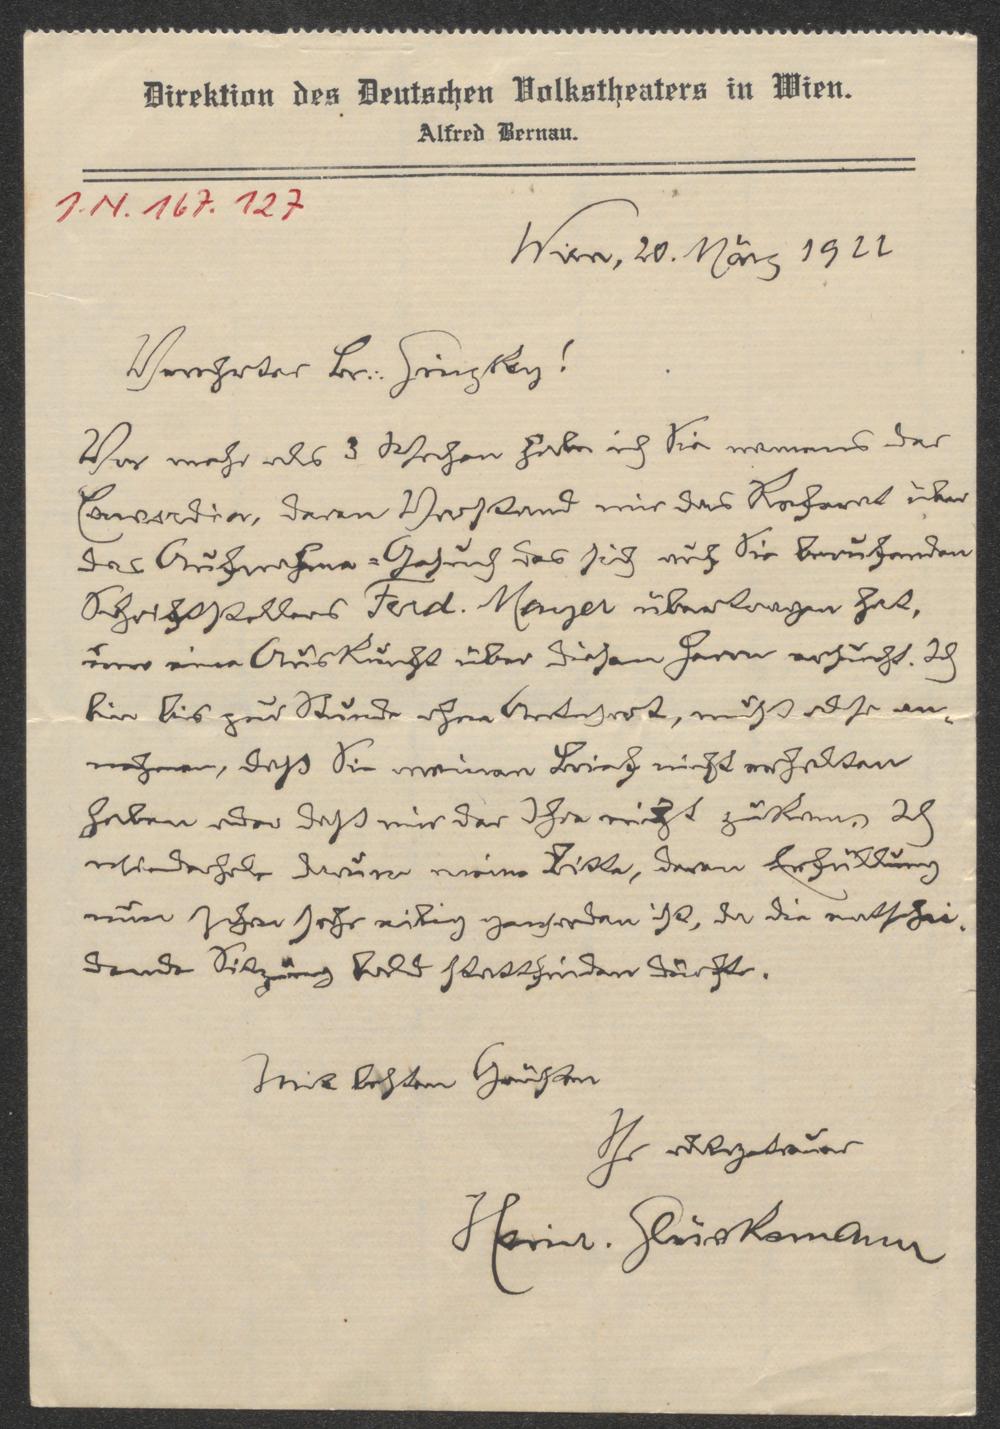 Direktion des Deutschen Volkstheaters in Wien.
Alfred Bernau.
I.N. 167.127
Wien, 20. März 1922
Verehrter Br∴ Ginzkey!
Vor mehr als 3 Wochen habe ich Sie namens der
Concordia, deren Vorstand mir das Referat über
das Aufnahme-Gesuch des sich auf Sie berufenden
Schriftstellers Ferd. Mayer übertragen hat,
um eine Auskunft über diesen Herrn ersucht. Ich
bin bis zur Stunde ohne Antwort, muß also an-
nehmen, daß Sie meinen Brief nicht erhalten
haben oder daß mir der Ihre nicht zukam. Ich
wiederhole darum meine Bitte, deren Erfüllung
nun schon sehr eilig geworden ist, da die entschei-
dende Sitzung bald stattfinden dürfte.
Mit besten Grüßen
Ihr altergetreuer
Heinr. Glücksmann